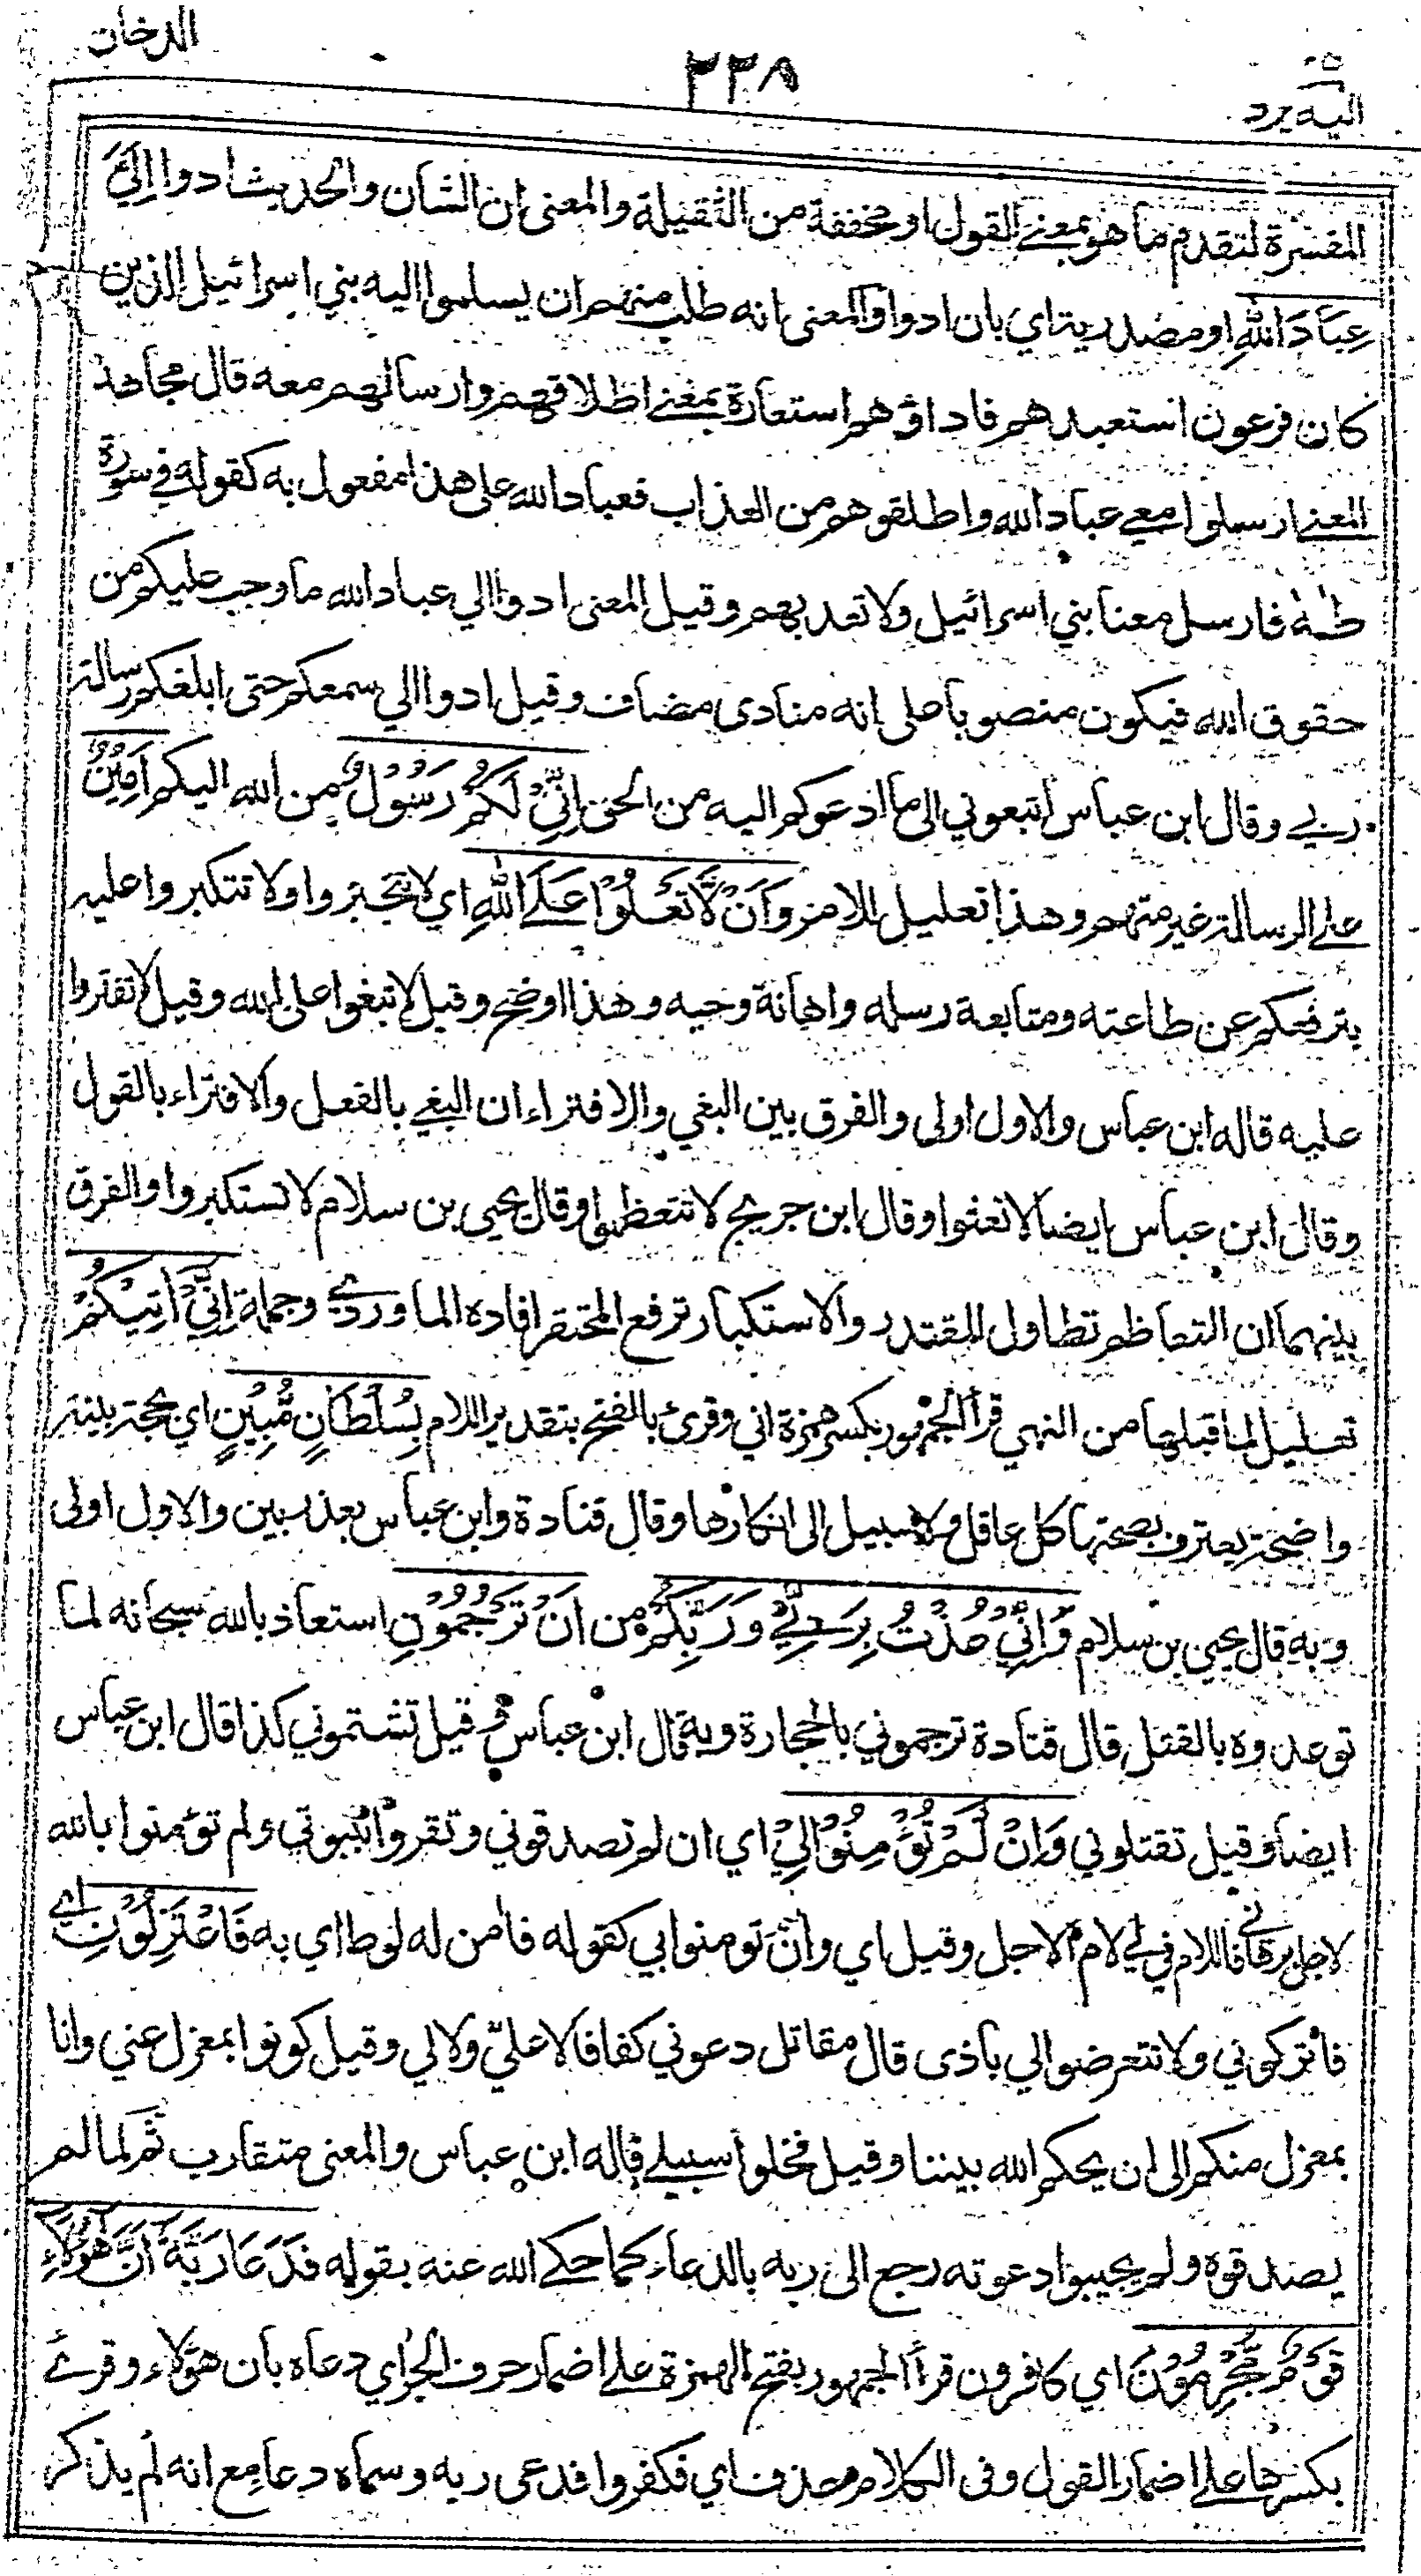 الدخان
٣٣٨
اليه يرد ٢٥
المفسرة لتقدم ما هو بمعنى القول او مخففة من الثقيلة والمعنى ان الشان والحديث ادوا اِلَيَّ
عِبَادَ اللّٰهِ او مصدرية اي بان ادوا والمعنى انه طلب منهم ان يسلموا اليه بني اسرائيل الذين
كان فرعون استعبدهم فاداؤهم استعارة بمعنى اطلاقهم وارسالهم معه قال مجاهد
المعنى ارسلوا معي عباد الله واطلقوهم من العذاب فعباد الله على هذا مفعول به كقوله في سورة
طٰهٰ فارسل معنا بني اسرائيل ولا تعذبهم وقيل المعنى ادوا الي عباد الله ما وجب عليكم من
حقوق الله فيكون منصوبا على انه منادى مضاف وقيل ادوا الي سمعكم حتى ابلغكم رسالة
ربي وقال ابن عباس اتبعوني الى ما ادعوكم اليه من الحق اِنِّيْ لَكُمْ رَسُوْلٌ من الله اليكم اَمِيْنٌ
على الرسالة غير متهم وهذا تعليل للامر وَاَنْ لَّا تَعْلُوْا عَلَى اللّٰهِ اي لا تتجبروا ولا تتكبروا عليه
بترفعكم عن طاعته ومتابعة رسله واهانة وحيه وهذا اوضح وقيل لا تبغوا على الله وقيل لا تفتروا
عليه قاله ابن عباس والاول اولى والفرق بين البغي والافتراء ان البغي بالفعل والافتراء بالقول
وقال ابن عباس ايضا لا تعثوا وقال ابن جريج لا تتعظموا وقال يحيى بن سلام لا تستكبروا والفرق
بينهما ان التعاظم تطاول المقتدر والاستكبار ترفع المحتقر افاده الماوردي وجملة اِنِّيْ اٰتِيْكُمْ
تعليل لما قبلها من النهي قرأ الجمهور بكسر همزة اني وقرئ بالفتح بتقدير اللام بِسُلْطَانٍ مُّبِيْنٍ اي بحجة بينة
واضحة يعترف بصحتها كل عاقل ولا سبيل الى انكارها وقال قتادة وابن عباس بعذر بين والاول اولى
وبه قال يحيى بن سلام وَاِنِّيْ عُذْتُ بِرَبِّيْ وَرَبِّكُمْ من اَنْ تَرْجُمُوْنِ استعاذ بالله سبحانه لما
توعدوه بالقتل قال قتادة ترجموني بالحجارة وبه قال ابن عباس وقيل تشتموني كذا قال ابن عباس
ايضا وقيل تقتلوني وَاِنْ لَّمْ تُؤْمِنُوْا لِيْ اي ان لم تصدقوني وتقروا بنبوتي ولم تؤمنوا بالله
لاجل برهاني فاللام في لي لام الاجل وقيل اي وان لم تومنوا بي كقوله فاٰمن له لوط اي به فَاعْتَزِلُوْنِ اي
فاتركوني ولا تتعرضوا لي باذى قال مقاتل دعوني كفافا لا عليّ ولا لي وقيل كونوا بمعزل عني وانا
بمعزل منكم الى ان يحكم الله بيننا وقيل فخلوا سبيلي قاله ابن عباس والمعنى متقارب ثم لما لم
يصدقوه ولم يجيبوا دعوته رجع الى ربه بالدعاء كما حكى الله عنه بقوله فَدَعَا رَبَّهٗ اَنَّ هٰؤُلَاءِ
قَوْمٌ مُّجْرِمُوْنَ اي كافرون قرأ الجمهور بفتح الهمزة على اضمار حرف الجر اي دعاه بان هؤلاء وقرئ
بكسرها على اضمار القول وفى الكلام حذف اي فكفروا فدعى ربه وسماه دعا مع انه لم يذكر